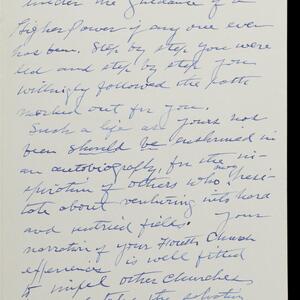 under the guidance of a
Higher Power if any one ever
has been. Step by step you were
led and step by step you
willingly followed the path
marked out for you.
Such a life as yours has
been should be enshrined in
an autobiography, for the in-
spiration of others who may hesi-
tate about venturing into hard
and untried fields. Your
narrative of your Fourth Church
experience is well fitted
to impel other Churches
the salvation